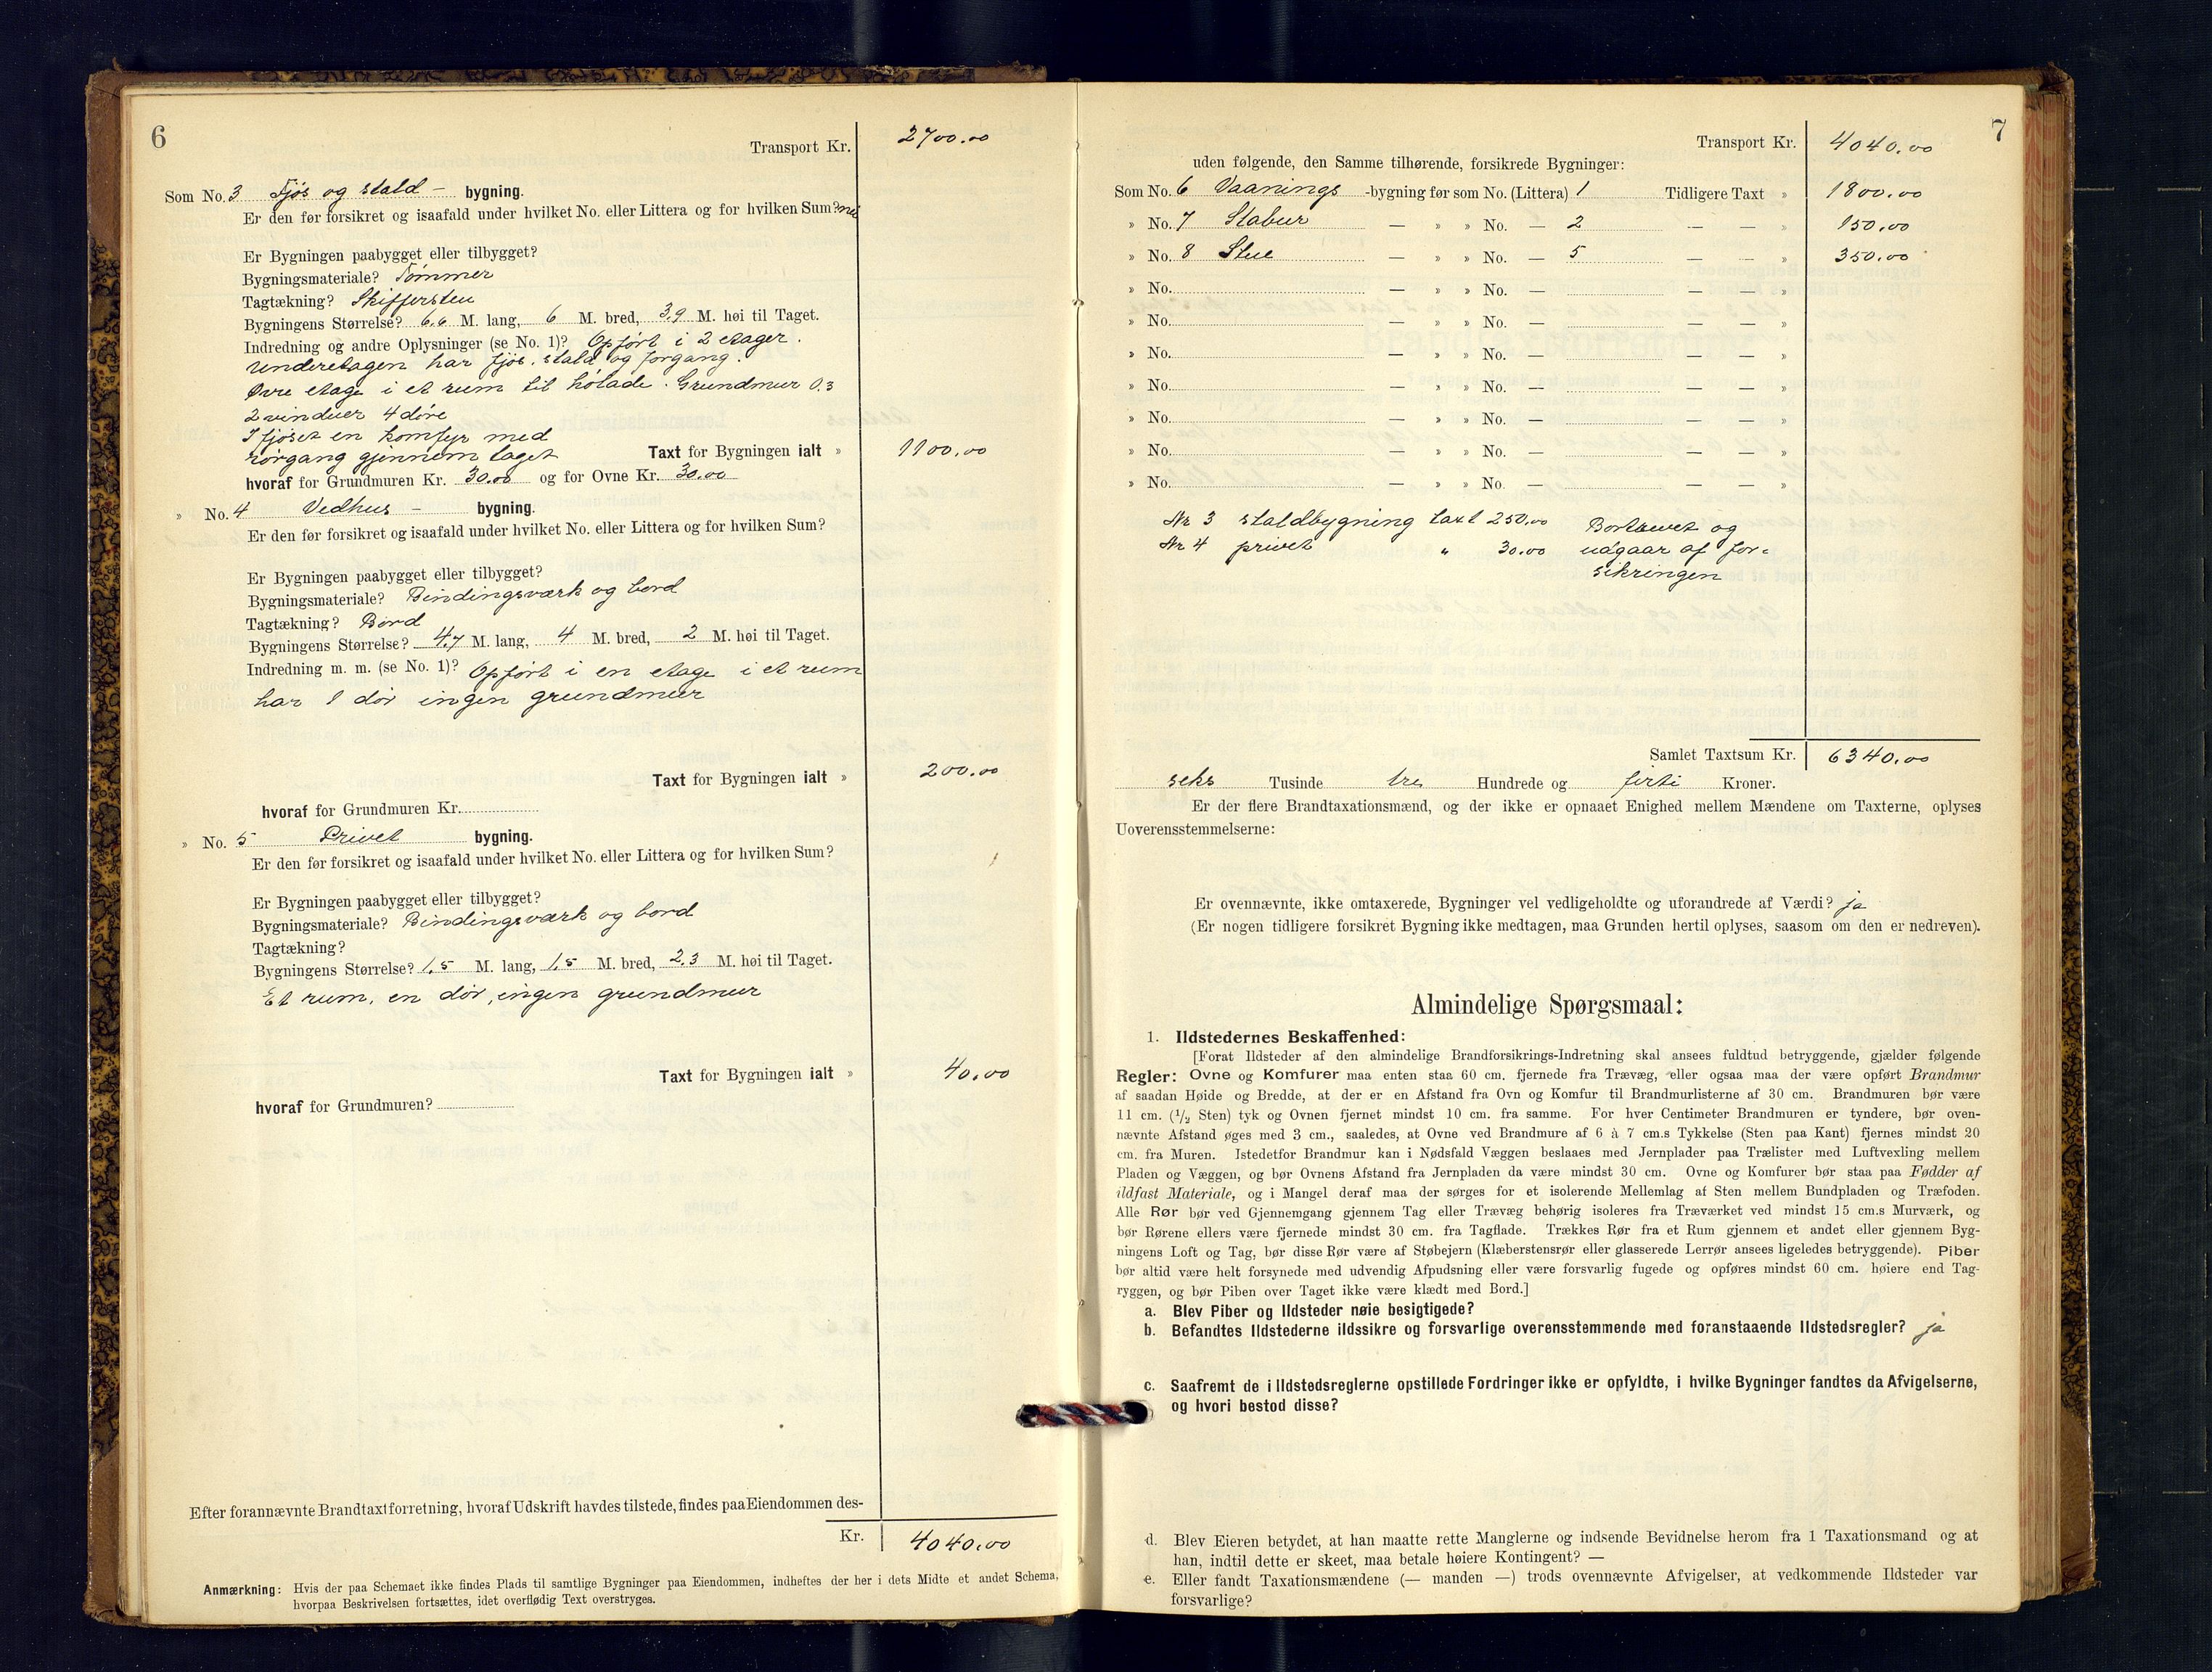 6
Transport Kr. 2700.00
Som No. 3 Fjøs og stald – bygning.
Er den før forsikret og isaafald under hvilket No. eller Littera og for hvilken Sum? nei
Er Bygningen paabygget eller tilbygget?
Bygningsmateriale? Tømmer
Tagtækning? Skiffersten
Bygningens Størrelse? 6,6 M. lang, 6 M. bred, 3,9 M. høi til Taget.
Indredning og andre Oplysninger (se No. 1)? Opført i 2 etager.
Underetagen har fjøs, stald og forgang.
Øvre etage i et rum til hølade. Grundmur 0.3
2 vinduer 4 døre
I fjøset en komfyr med
rørgang gjennem taget Taxt for Bygningen ialt » 1100.00
hvoraf for Grundmuren Kr. 30.00 og for Ovne Kr. 30.00
» No. 4 Vedhus – bygning.
Er den før forsikret og isaafald under hvilket No. eller Littera og for hvilken Sum?
Er Bygningen paabygget eller tilbygget?
Bygningsmateriale? Bindingsværk og bord
Tagtækning? Bord
Bygningens Størrelse? 4,7 M. lang, 4 M. bred, 2 M. høi til Taget.
Indredning m. m. (se No. 1)? Opført i en etage i et rum
har 1 dør ingen grundmur
Taxt for Bygningen ialt » 200.00
hvoraf for Grundmuren Kr.
» No. 5 Privet bygning.
Er den før forsikret og isaafald under hvilket No. eller Littera og for hvilken Sum?
Er Bygningen paabygget eller tilbygget?
Bygningsmateriale? Bindingsværk og bord
Tagtækning?
Bygningens Størrelse? 1,5 M. lang, 1,5 M. bred, 2,3 M. høi til Taget.
Et rum, en dør, ingen grundmur
Taxt for Bygningen ialt » 40.00
hvoraf for Grundmuren?
Efter forannævnte Brandtaxtforretning, hvoraf Udskrift havdes tilstede, findes paa Eiendommen des-
Kr. 4040.00
Anmærkning: Hvis der paa Schemaet ikke findes Plads til samtlige Bygninger paa Eiendommen, indheftes der her i dets Midte et andet Schema,
hvorpaa Beskrivelsen fortsættes, idet overflødig Text overstryges.
7
Transport Kr. 4040.00
uden følgende, den Samme tilhørende, forsikrede Bygninger:
Som No. 6 Vaanings -bygning før som No. (Littera) 1 Tidligere Taxt » 1800.00
» No. 7 Stabur — » » No. — 2 — — » 150.00
» No. 8 Stue — » » No. — 5 — — » 350.00
» No. — » » No. — — — »
» No. — » » No. — — — »
» No. — » » No. — — — »
» No. — » » No. — — — »
» No. — » » No. — — — »
» No. — » » No. — — — »
» No. — » » No. — — — »
Nr 3 staldbygning taxt 250.00 Bortrevet og
Nr 4 privet " 30.00 udgaar af for-
sikringen
Samlet Taxtsum Kr. 6340.00
seks Tusinde tre Hundrede og førti Kroner.
Er der flere Brandtaxationsmænd, og der ikke er opnaaet Enighed mellem Mændene om Taxterne, oplyses
Uoverensstemmelserne:
Er ovennævnte, ikke omtaxerede, Bygninger vel vedligeholdte og uforandrede af Værdi? ja
(Er nogen tidligere forsikret Bygning ikke medtagen, maa Grunden hertil oplyses, saasom om den er nedreven).
Almindelige Spørgsmaal:
1. Ildstedernes Beskaffenhed:
[Forat Ildsteder af den almindelige Brandforsikrings-Indretning skal ansees fuldtud betryggende, gjælder følgende
Regler: Ovne og Komfurer maa enten staa 60 cm. fjernede fra Trævæg, eller ogsaa maa der være opført Brandmur
af saadan Høide og Bredde, at der er en Afstand fra Ovn og Komfur til Brandmurlisterne af 30 cm. Brandmuren bør være
11 cm. (1/2 Sten) tyk og Ovnen fjernet mindst 10 cm. fra samme. For hver Centimeter Brandmuren er tyndere, bør oven-
nævnte Afstand øges med 3 cm., saaledes, at Ovne ved Brandmure af 6 à 7 cm.s Tykkelse (Sten paa Kant) fjernes mindst 20
cm. fra Muren. Istedetfor Brandmur kan i Nødsfald Væggen beslaaes med Jernplader paa Trælister med Luftvexling mellem
Pladen og Væggen, og bør Ovnens Afstand fra Jernpladen da være mindst 30 cm. Ovne og Komfurer bør staa paa Fødder af
ildfast Materiale, og i Mangel deraf maa der sørges for et isolerende Mellemlag af Sten mellem Bundpladen og Træfoden.
Alle Rør bør ved Gjennemgang gjennem Tag eller Trævæg behørig isoleres fra Træværket ved mindst 15 cm.s Murværk, og
bør Rørene ellers være fjernede mindst 30 cm. fra Tagflade. Trækkes Rør fra et Rum gjennem et andet eller gjennem Byg-
ningens Loft og Tag, bør disse Rør være af Støbejern (Klæberstensrør eller glasserede Lerrør ansees ligeledes betryggende). Piber
bør altid være helt forsynede med udvendig Afpudsning eller være forsvarlig fugede og opføres mindst 60 cm. høiere end Tag-
ryggen, og bør Piben over Taget ikke være klædt med Bord.]
a. Blev Piber og Ildsteder nøie besigtigede?
b. Befandtes Ildstederne ildssikre og forsvarlige overensstemmende med foranstaaende Ildstedsregler? ja
c. Saafremt de i Ildstedsreglerne opstillede Fordringer ikke er opfyldte, i hvilke Bygninger fandtes da Afvigelserne,
og hvori bestod disse?
d. Blev Eieren betydet, at han maatte rette Manglerne og indsende Bevidnelse herom fra 1 Taxationsmand og at
han, indtil dette er skeet, maa betale høiere Kontingent? —
e. Eller fandt Taxationsmændene (— manden —) trods ovennævnte Afvigelser, at vedkommende Ildsteder var
forsvarlige?